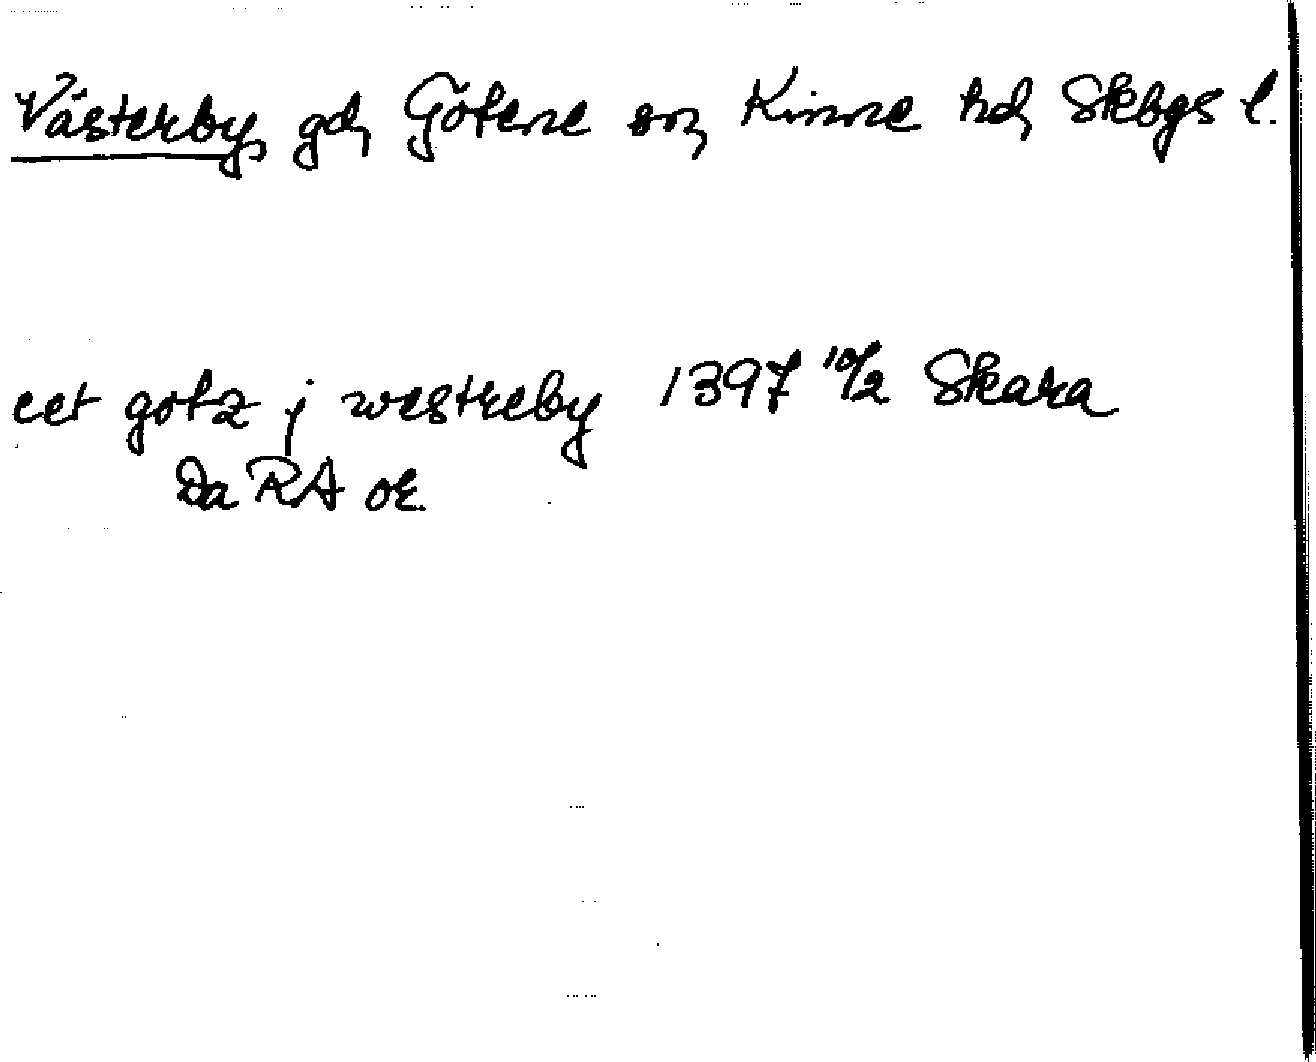 Västerby, gd, Götene sn, Kinne hd, Skbgs l.
eet gotz j westreby 1397 10/2 Skara
Da RA or.